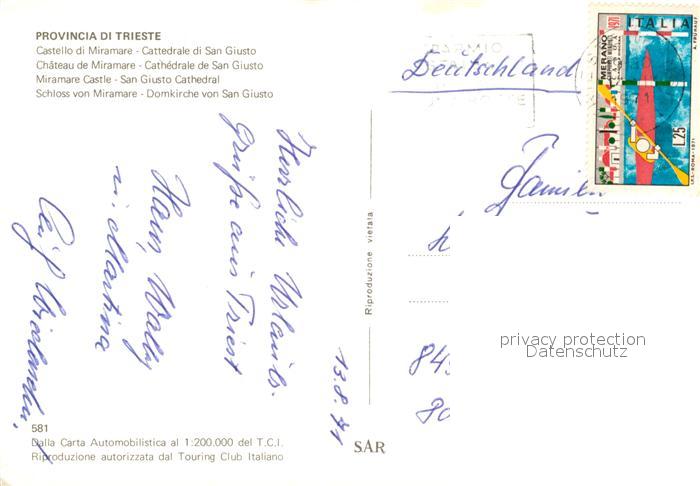 PROVINCIA DI TRIESTE
Castello di Miramare - Cattedrale di San Giusto
Château de Miramare - Cathédrale de San Giusto
Miramare Castle - San Giusto Cathedral
Schloss von Miramare - Domkirche von San Giusto
13.8.71
Herzliche Urlaubs-
grüße aus Triest
Hans, Wally
u. Martina
Auf Wiedersehen,
581
Dalla Carta Automobilistica al 1:200.000 del T.C.I.
Riproduzione autorizzata dal Touring Club Italiano
Riproduzione vietata
SAR
Deutschland
Familie
845
80
ITALIA
MERANO
1971
L.25
I.P.S.-ROMA-1971
privacy protection
Datenschutz